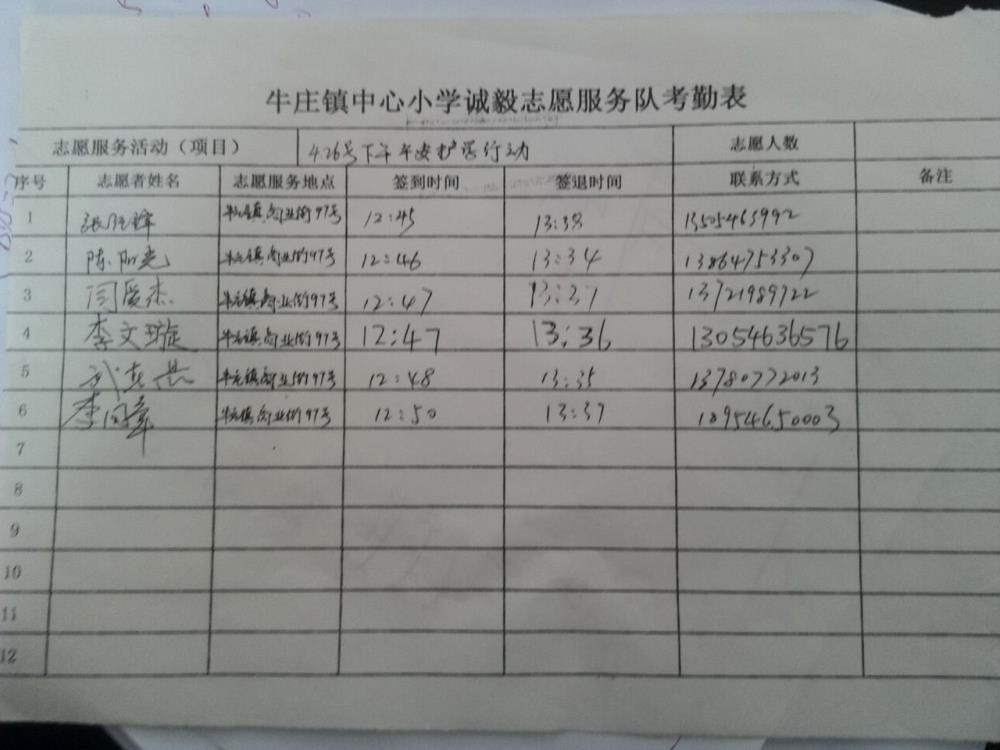 牛庄镇中心小学诚毅志愿服务队考勤表
志愿服务活动（项目） 4.26号下午平安护学行动 志愿人数
序号 志愿者姓名 志愿服务地点 签到时间 签退时间 联系方式 备注
1 牛庄镇商业街97号 12:45 13:38 13505465992
2 陈阳光 牛庄镇商业街97号 12:46 13:34 13864753307
3 闫爱杰 牛庄镇商业街97号 12:47 13:37 13721989722
4 李文璇 牛庄镇商业街97号 12:47 13:36 13054636576
5 牛庄镇商业街97号 12:48 13:35 13780772013
6 牛庄镇商业街97号 12:50 13:37 18954650003
7
8
9
10
11
12